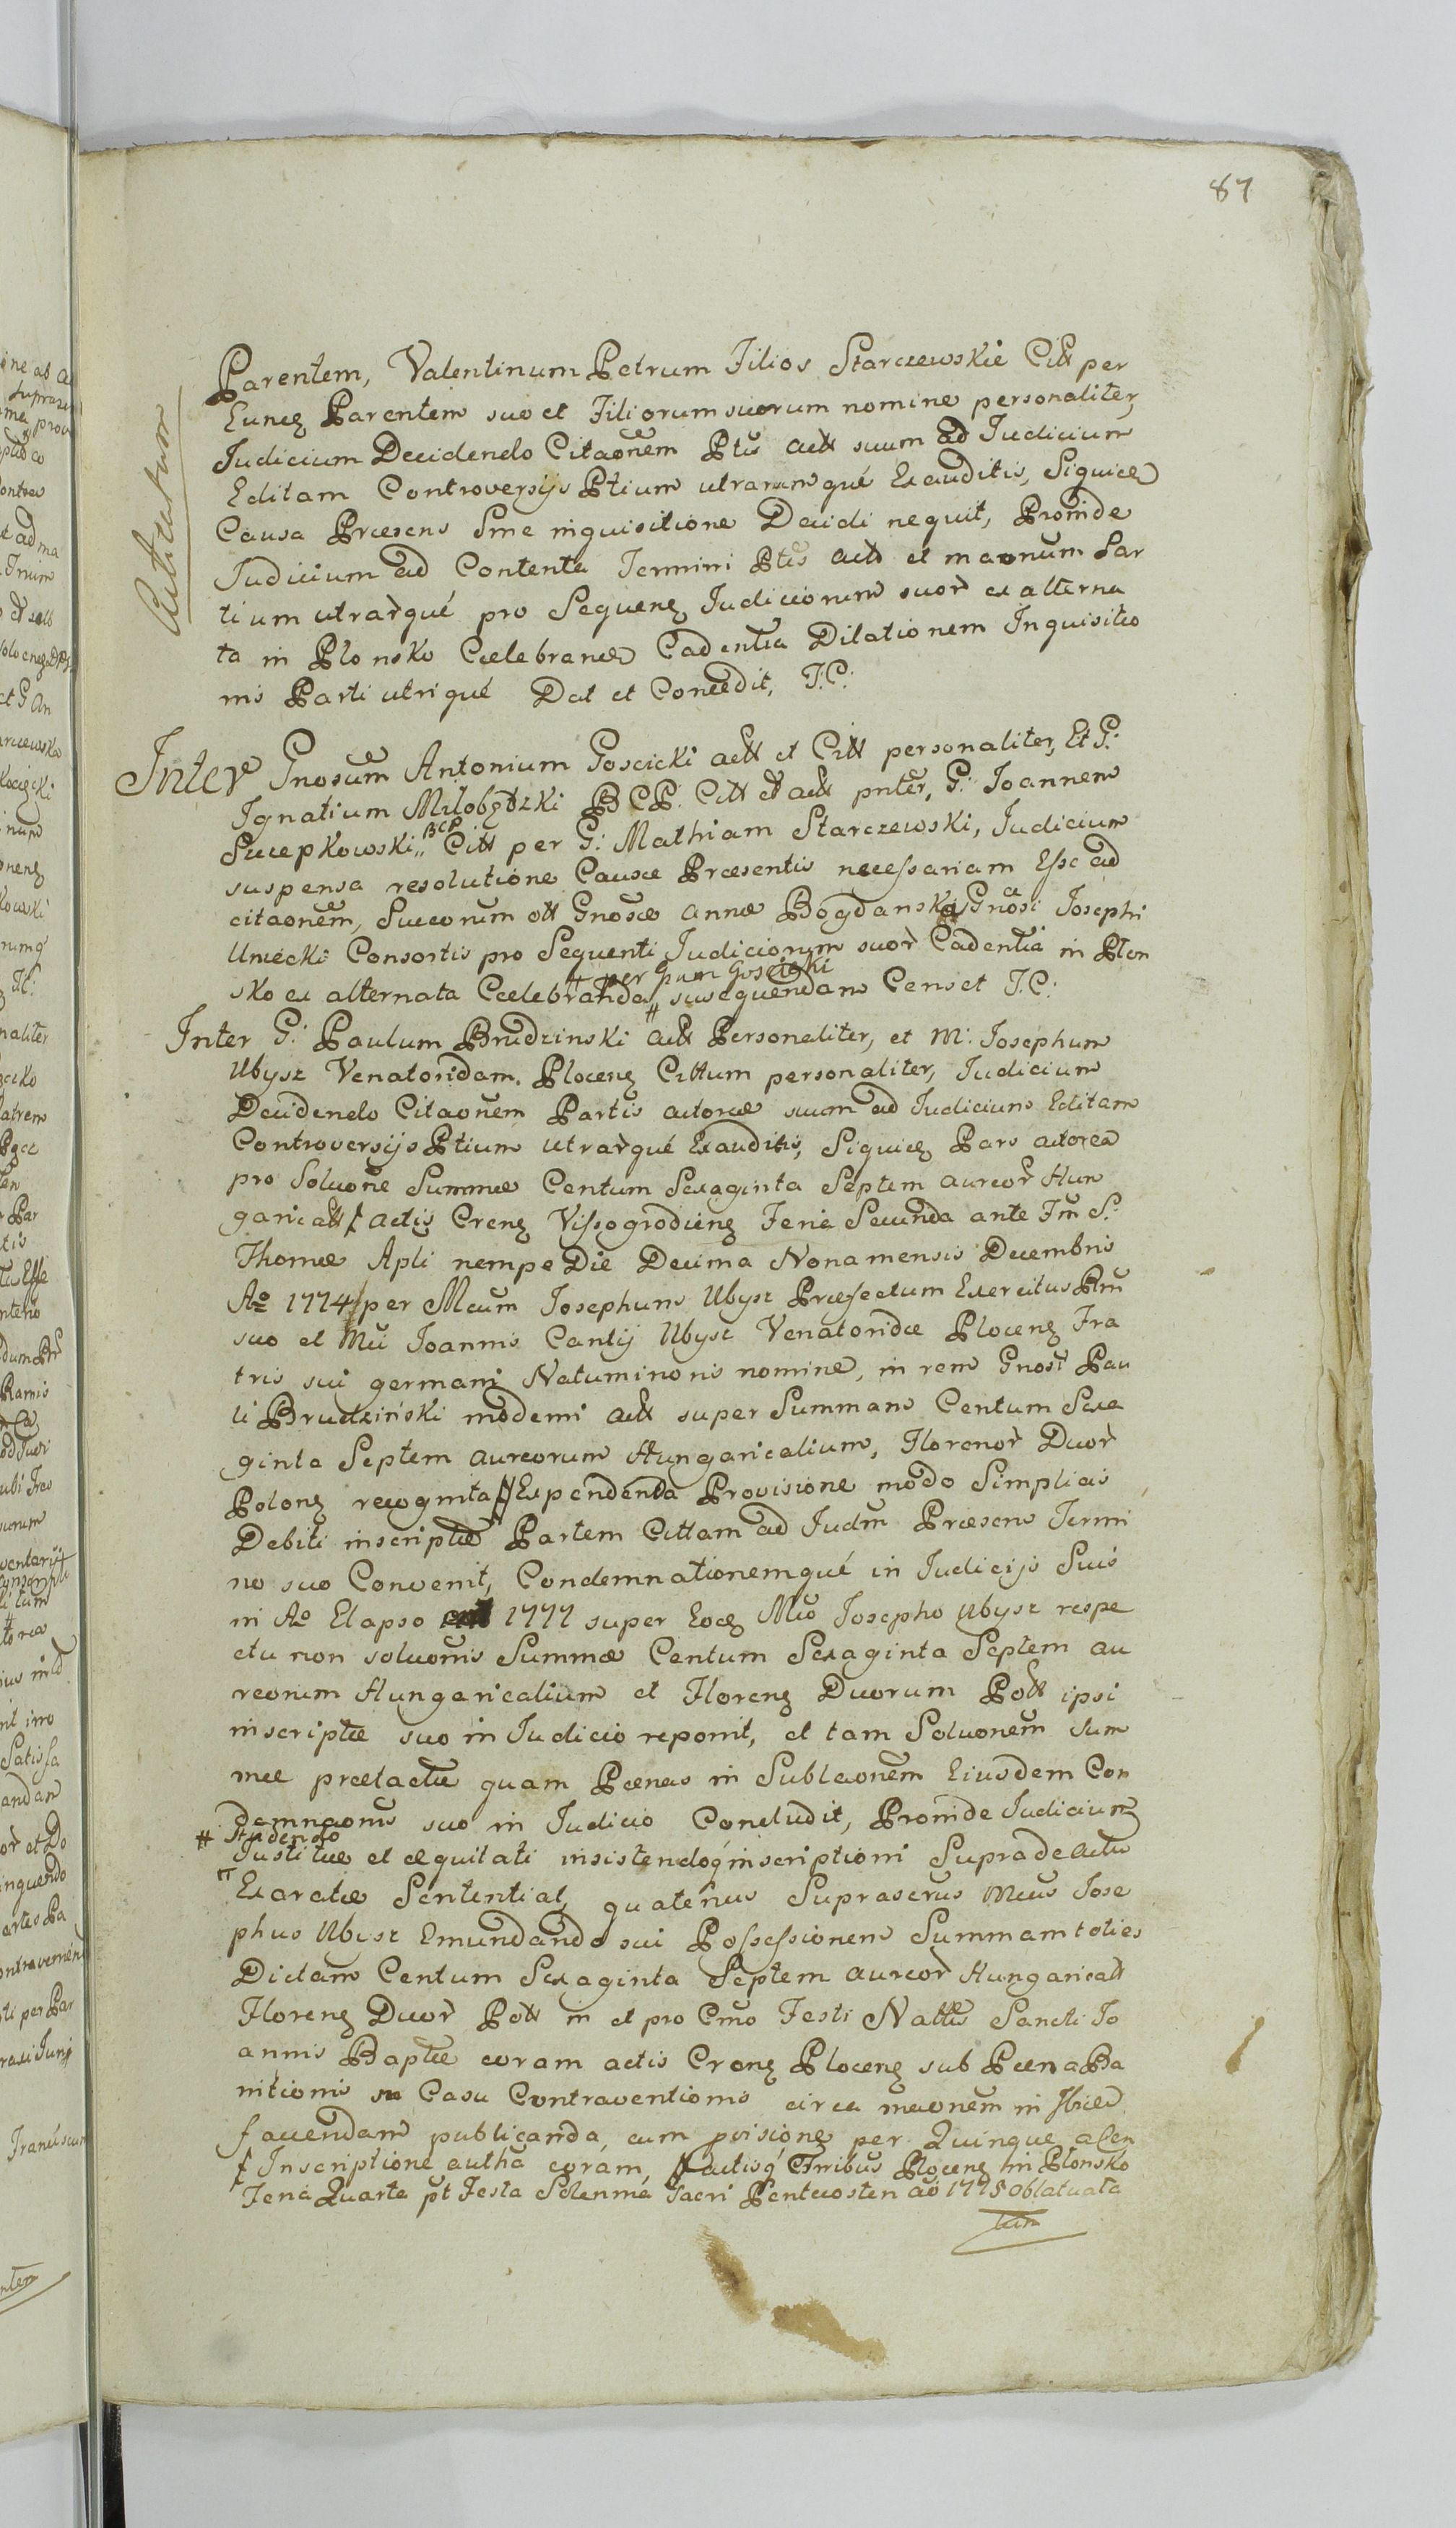 87
Parentem, Valentinum Petrum Filios Starczewskie Citt per
Eunq Parentem suo et Filiorum suorum nomine personaliter,
Judicium Decidendo Citaonem Ptis actt suum ad Judicium
Editam Controversijs Ptium utrarumqué Exauditis, Siquidem
Causa Præsens Sine inquisitione Decidi nequit, Proinde
Judicium ad Contenta Termini Ptis actt et maonum Par
tium utrarqué pro Sequenq Judiciorum suor ex alterna
ta in Plonsko Cælebranda Cadentia Dilationem Inquisitio
nis Parti utriqué Dat et Concedit, J.C.
Inter Gnosum Antonium Goscicki actt et Citt personaliter, Et G:
Ignatium Miłobędzki BCP. Citt et actt pnter, G: Joannem
Sucepkowski,, BCP Citt per G: Mathiam Starczewski, Judicium
suspensa resolutione Causæ Præsentis necessariam Esse ad
citaonem, Succorum ott Gnosæ Annæ Bogdanska Gnosi Josephi
Uniecki Consortis pro Sequenti Judiciorum suor Cadentia in Plon
# per Gnum Goscicki
sko ex alternata Cælebranda # susequendam Censet J.C.
Inter G: Paulum Brudzinski actt Personaliter, et M: Josephum
Ubysz Venatoridam. Plocenq Cittum personaliter, Judicium
Decidendo Citaonem Partis actoreæ suum ad Judicium Editam
Controversijs Ptium utrarqué Exauditis, Siquidq Pars actorea
pro Soluone Summæ Centum Sexaginta Septem aureor Hun
garicatt ⸸ actis Crenq Vissogrodienq Feria Secunda ante Fm S.
Thomæ Apli nempe Die Decima Nona mensis Decembris
Ao 1774 per Mcum Josephum Ubysz Præfectum Exercitus Rm
suo et Mci Joannis Cantij Ubysz Venatoridæ Plocenq Fra
tris sui germani Natuminoris nomine, in rem Gnosi Pau
li Brudziński moderni actt super Summam Centum Sexa
ginta Septem aureorum Hungaricalium, Florenor Duor
Polonq recognita Expendenda Provisione modo Simplicis
Debiti inscriptæ Partem Cittam ad Judm Præsens Termi
no suo Convenit, Condemnationemqué in Judicijs Suis
in Ao Elapso 1777 super Eodq Mco Josepho Ubysz respe
ctu non soluonis Summæ Centum Sexaginta Septem au
reorum Hungaricalium et Florenq Duorum Pott ipsi
inscriptæ suo in Judicio reponit, et tam Soluonem Sum
mæ prætactæ quam Pœnas in Sublaonem Eiusdem Con
demnaonis suo in Judicio Concludit, Proinde Judicium
# Studendo
Justitiæ et æquitati insistendoq inscriptioni Supradeactu
Exaratæ Sententiat, quatenus Suprascrus Mcus Jose
phus Ubysz Emundando sui Possessionem Summam toties
Dictam Centum Sexaginta Septem aureor Hungaricatt
Florenq Duor Pott in et pro Cmo Festi Nattis Sancti Jo
annis Baptæ coram actis Cronq Plocenq sub Pœna Ba
nitionis in Casu Contraventionis circa maonem in
faciendam publicanda, cum pvisione per Quinque a Cen
⸸ Inscriptione autha coram, actisq Plocenq in Plonsko
Feria Quarta pt Festa Solennia Sacri Pentecosten ao 1775 oblatuata
tum